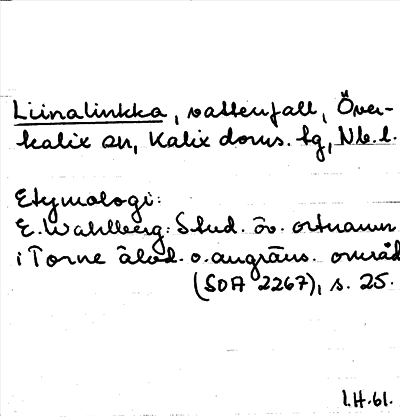 Liinalinkka, vattenfall, Över-
kalix sn, Kalix doms. tg, Nb. l.
Etymologi:
E. Wahlberg: Stud. öv. ortnamn
i Torne älvd. o. angräns. områd
(SOA 2267), s. 25.
I.H. 61.